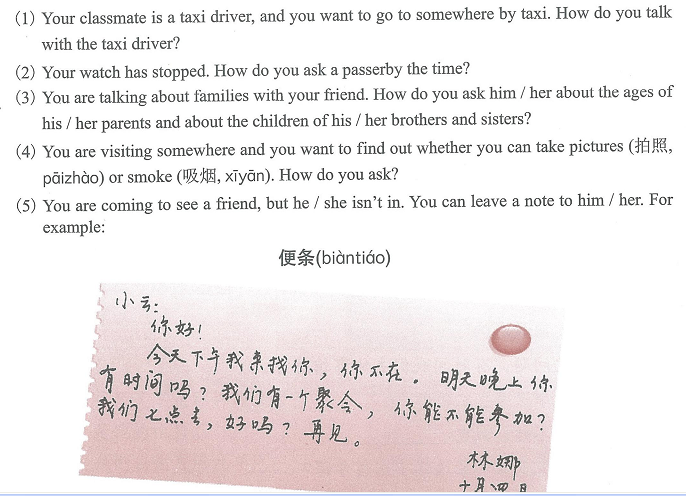 (1) Your classmate is a taxi driver, and you want to go to somewhere by taxi. How do you talk
with the taxi driver?
(2) Your watch has stopped. How do you ask a passerby the time?
(3) You are talking about families with your friend. How do you ask him / her about the ages of
his / her parents and about the children of his / her brothers and sisters?
(4) You are visiting somewhere and you want to find out whether you can take pictures (拍照,
pāizhào) or smoke (吸烟, xīyān). How do you ask?
(5) You are coming to see a friend, but he / she isn't in. You can leave a note to him / her. For
example:
便条(biàntiáo)
小云:
你好!
今天下午我来找你,你不在。明天晚上你
有时间吗?我们有一个聚会,你能不能参加?
我们七点去,好吗?再见。
林娜
十月四日